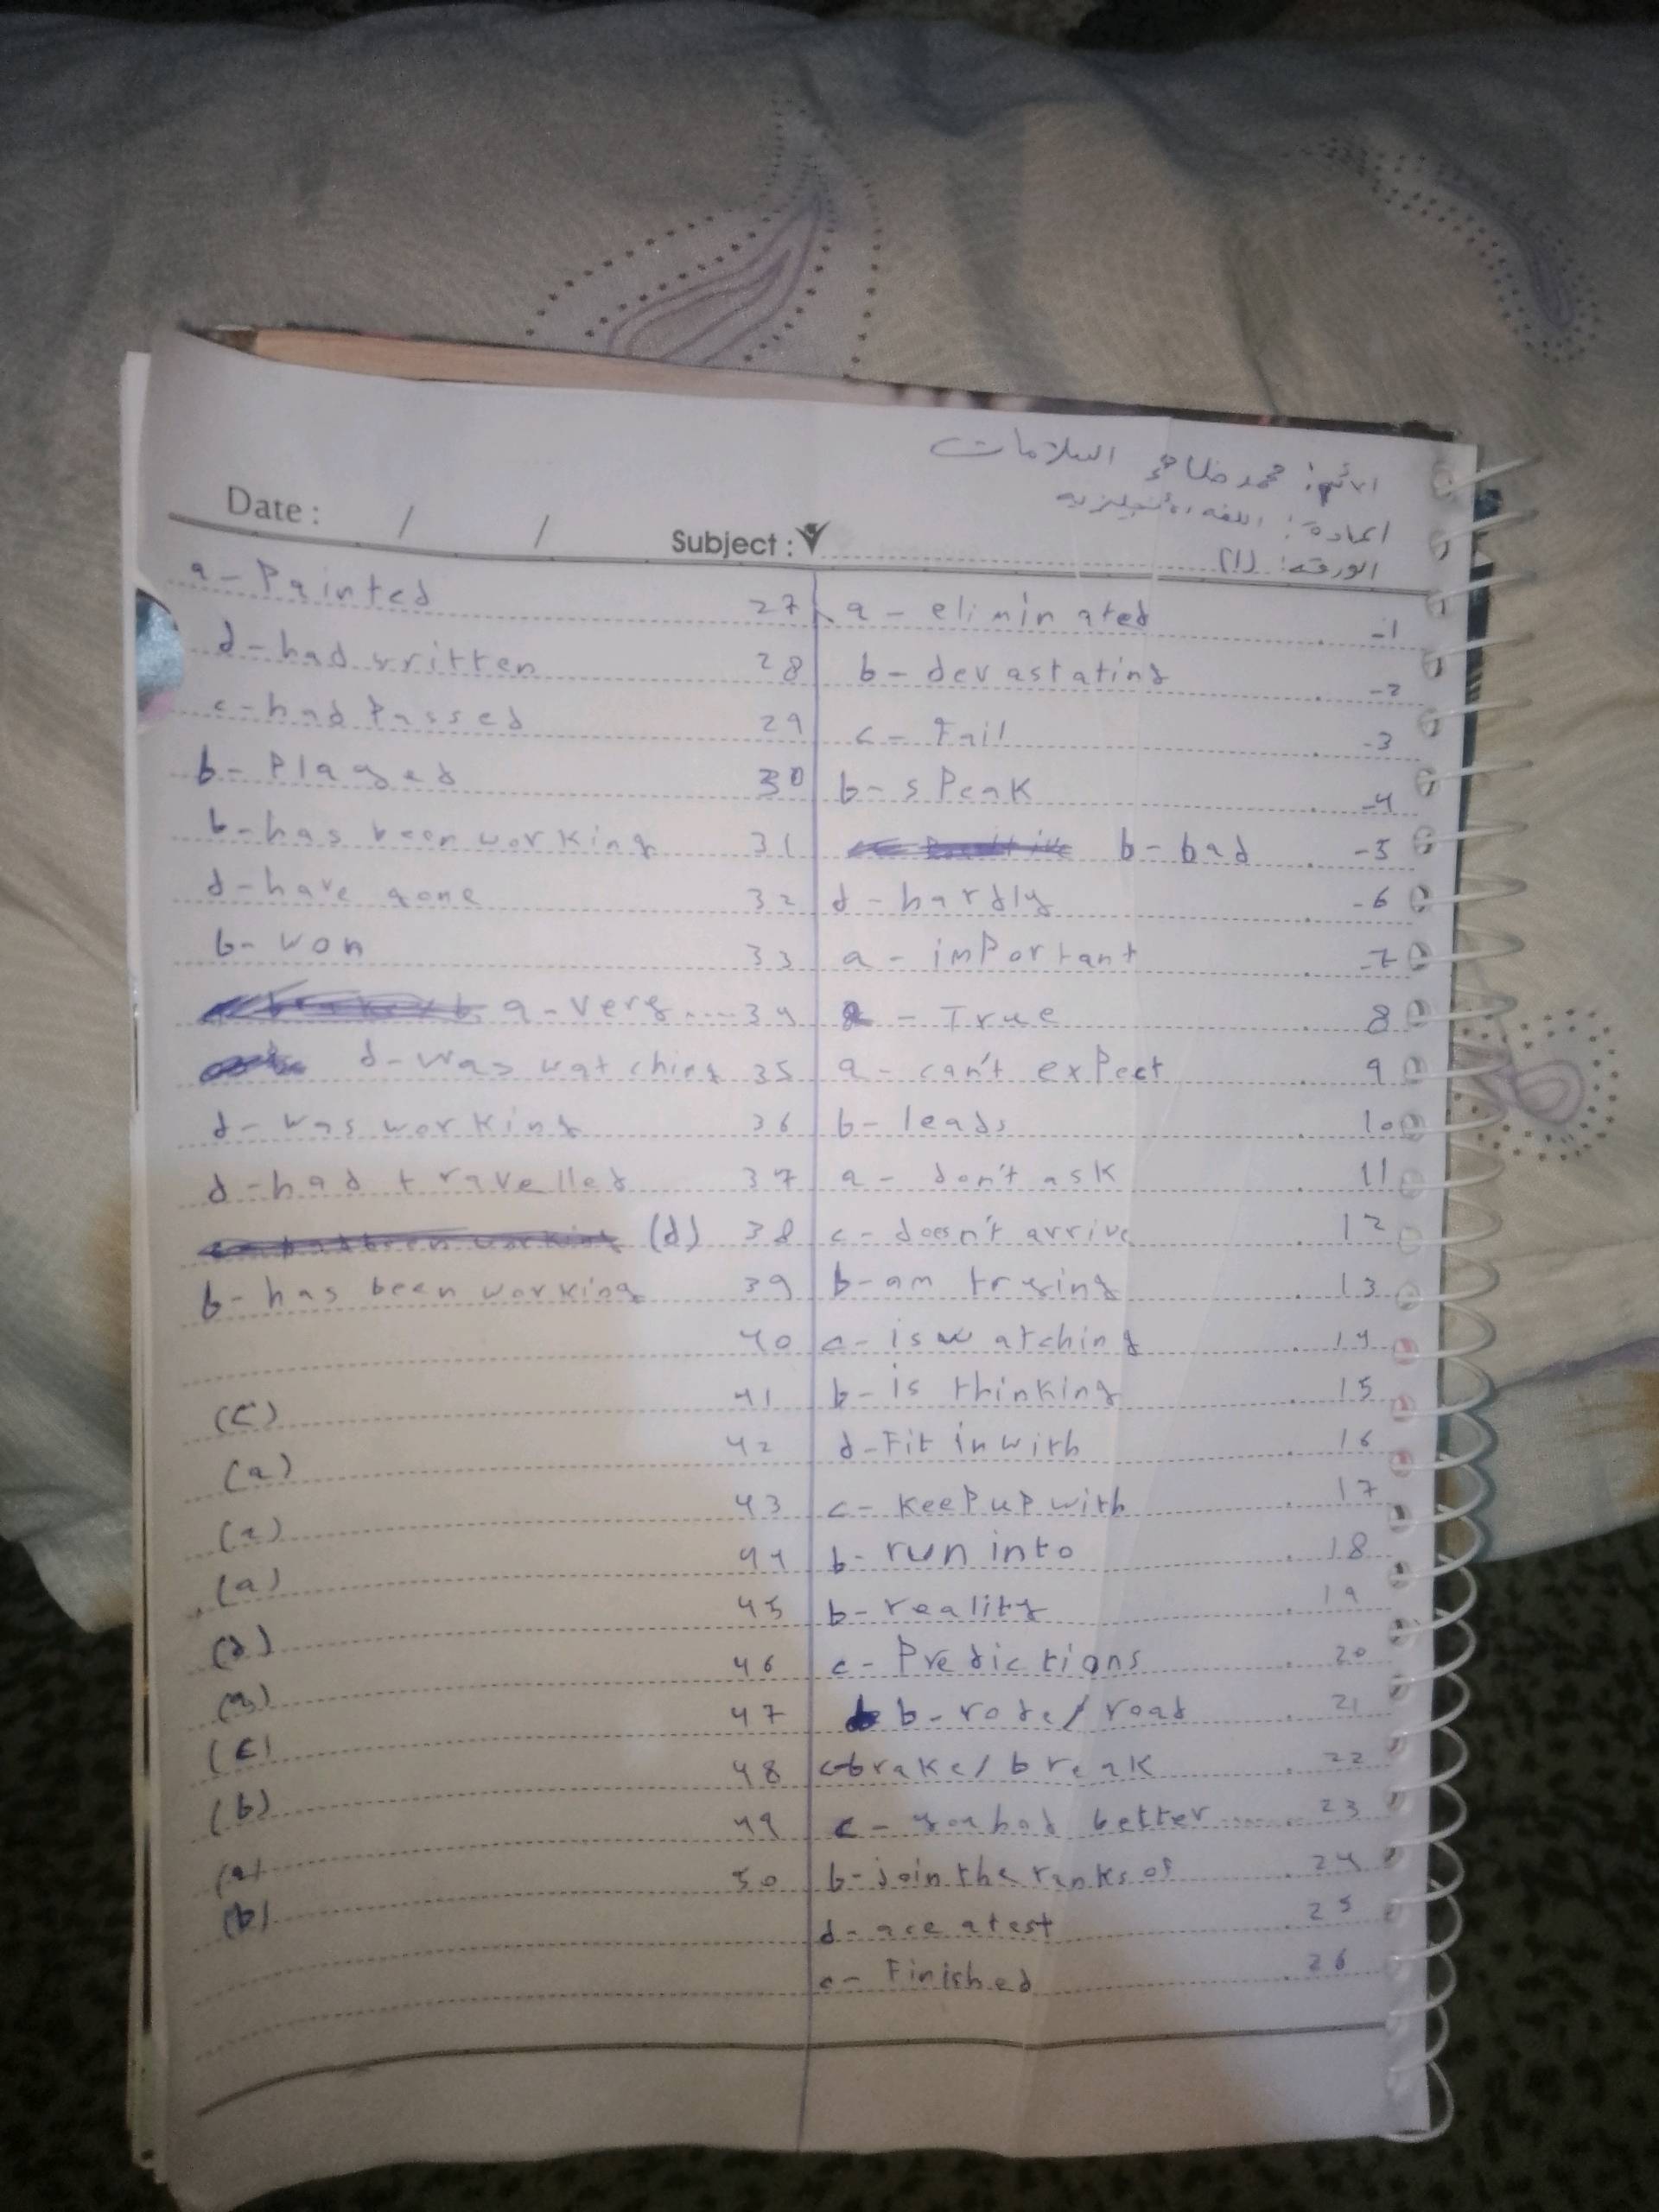 الأسم: محمد ظاهر السلامات
المادة: اللغه الأنجليزيه
الورقة: (1)
Date: / / Subject:
-1 a - eliminated
-2 b - devastating
-3 c - Fail
-4 b - speak
-5 b - bad
-6 d - hardly
-7 a - important
8 - True
9 a - can't expect
10 b - leads
11 a - don't ask
12 c - doesn't arrive
13 b - am trying
14 c - is watching
15 b - is thinking
16 d - Fit in with
17 c - keep up with
18 b - run into
19 b - reality
20 c - Predictions
21 b - rode / road
22 c - brake / break
23 c - you had better ....
24 b - join the ranks of
25 d - ace a test
26 c - Finished
27 a - Painted
28 d - had written
29 c - had Passed
30 b - Played
31 b - has been working
32 d - have gone
33 b - won
34 a - very ....
35 d - was watching
36 d - was working
37 d - had travelled
38 (d)
39 b - has been working
40
41 (c)
42 (a)
43 (a)
44 (a)
45 (d)
46 (a)
47 (c)
48 (b)
49 (a)
50 (b)